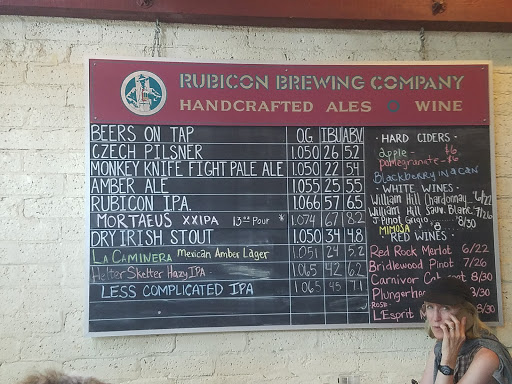 RUBICON BREWING COMPANY
HANDCRAFTED ALES WINE
BEERS ON TAP OG IBU ABV
CZECH PILSNER 1.050 26 5.2
MONKEY KNIFE FIGHT PALE ALE 1.050 22 5.4
AMBER ALE 1.055 25 5.5
RUBICON IPA 1.066 57 6.5
MORTAEUS XXIPA 13oz Pour * 1.074 67 8.2
DRY IRISH STOUT 1.050 34 4.8
LA CAMINERA Mexican Amber Lager 1.051 24 5.2
Helter Skelter Hazy IPA 1.065 42 6.2
LESS COMPLICATED IPA 1.065 45 7.1
· HARD CIDERS ·
apple - $6
pomegranate - $6
Blackberry in a can
· WHITE WINES ·
William Hill Chardonnay
William Hill Sauv. Blanc 7/26
J Pinot Grigio 8/30
MIMOSA $8
· RED WINES ·
Red Rock Merlot 6/22
Bridlewood Pinot 7/26
Carnivor 8/30
3/30
ROSE
L'Esprit 8/30